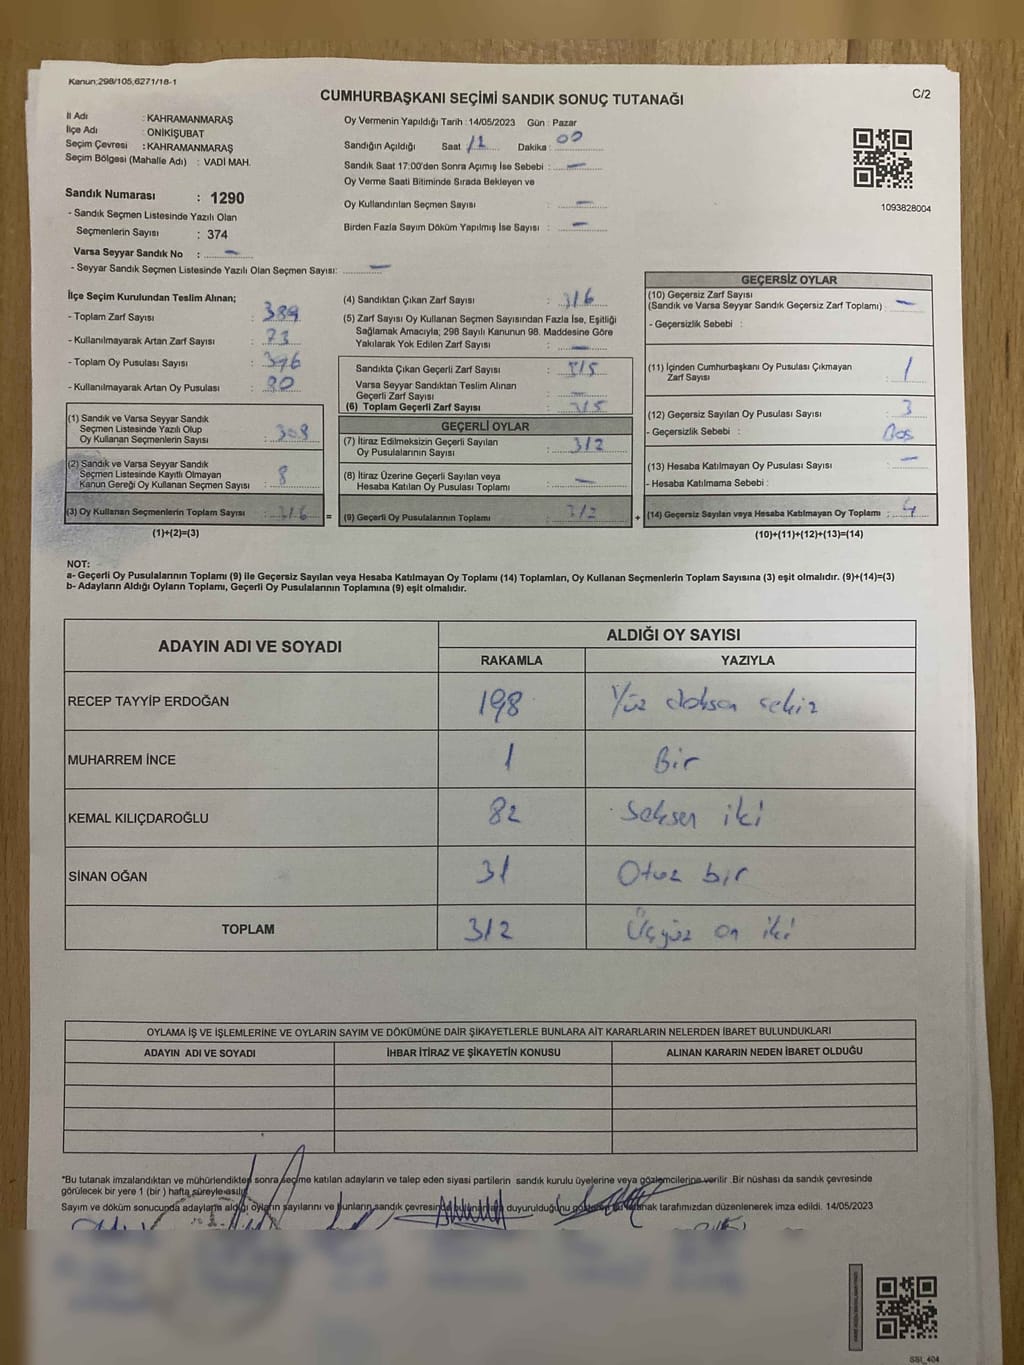 Kanun;298/105,6271/18-1
CUMHURBAŞKANI SEÇİMİ SANDIK SONUÇ TUTANAĞI
C/2
İl Adı : KAHRAMANMARAŞ
İlçe Adı : ONİKİŞUBAT
Seçim Çevresi : KAHRAMANMARAŞ
Seçim Bölgesi (Mahalle Adı) : VADİ MAH.
Sandık Numarası : 1290
- Sandık Seçmen Listesinde Yazılı Olan
Seçmenlerin Sayısı : 374
Varsa Seyyar Sandık No : —
- Seyyar Sandık Seçmen Listesinde Yazılı Olan Seçmen Sayısı: —
Oy Vermenin Yapıldığı Tarih : 14/05/2023 Gün : Pazar
Sandığın Açıldığı Saat Dakika : 00
Sandık Saat 17:00'den Sonra Açımış İse Sebebi : —
Oy Verme Saati Bitiminde Sırada Bekleyen ve
Oy Kullandırılan Seçmen Sayısı : —
Birden Fazla Sayım Döküm Yapılmış İse Sayısı : —
1093828004
İlçe Seçim Kurulundan Teslim Alınan;
- Toplam Zarf Sayısı : 389
- Kullanılmayarak Artan Zarf Sayısı : 73
- Toplam Oy Pusulası Sayısı : 396
- Kullanılmayarak Artan Oy Pusulası : 80
(1) Sandık ve Varsa Seyyar Sandık
Seçmen Listesinde Yazılı Olup
Oy Kullanan Seçmenlerin Sayısı : 308
(2) Sandık ve Varsa Seyyar Sandık
Seçmen Listesinde Kayıtlı Olmayan
Kanun Gereği Oy Kullanan Seçmen Sayısı : 8
(3) Oy Kullanan Seçmenlerin Toplam Sayısı : 316
(1)+(2)=(3)
=
(4) Sandıktan Çıkan Zarf Sayısı : 316
(5) Zarf Sayısı Oy Kullanan Seçmen Sayısından Fazla İse, Eşitliği
Sağlamak Amacıyla; 298 Sayılı Kanunun 98. Maddesine Göre
Yakılarak Yok Edilen Zarf Sayısı : —
Sandıkta Çıkan Geçerli Zarf Sayısı : 315
Varsa Seyyar Sandıktan Teslim Alınan
Geçerli Zarf Sayısı : —
(6) Toplam Geçerli Zarf Sayısı : 315
GEÇERLİ OYLAR
(7) İtiraz Edilmeksizin Geçerli Sayılan
Oy Pusulalarının Sayısı : 312
(8) İtiraz Üzerine Geçerli Sayılan veya
Hesaba Katılan Oy Pusulası Toplamı : —
(9) Geçerli Oy Pusulalarının Toplamı : 312
+
GEÇERSİZ OYLAR
(10) Geçersiz Zarf Sayısı
(Sandık ve Varsa Seyyar Sandık Geçersiz Zarf Toplamı) : —
- Geçersizlik Sebebi :
(11) İçinden Cumhurbaşkanı Oy Pusulası Çıkmayan
Zarf Sayısı : 1
(12) Geçersiz Sayılan Oy Pusulası Sayısı : 3
- Geçersizlik Sebebi : Boş
(13) Hesaba Katılmayan Oy Pusulası Sayısı : —
- Hesaba Katılmama Sebebi :
(14) Geçersiz Sayılan veya Hesaba Katılmayan Oy Toplamı : 4
(10)+(11)+(12)+(13)=(14)
NOT:
a- Geçerli Oy Pusulalarının Toplamı (9) ile Geçersiz Sayılan veya Hesaba Katılmayan Oy Toplamı (14) Toplamları, Oy Kullanan Seçmenlerin Toplam Sayısına (3) eşit olmalıdır. (9)+(14)=(3)
b- Adayların Aldığı Oyların Toplamı, Geçerli Oy Pusulalarının Toplamına (9) eşit olmalıdır.
ADAYIN ADI VE SOYADI
ALDIĞI OY SAYISI
RAKAMLA YAZIYLA
RECEP TAYYİP ERDOĞAN 198 Yüz doksan sekiz
MUHARREM İNCE 1 Bir
KEMAL KILIÇDAROĞLU 82 Seksen iki
SİNAN OĞAN 31 Otuz bir
TOPLAM 312 Üçyüz on iki
OYLAMA İŞ VE İŞLEMLERİNE VE OYLARIN SAYIM VE DÖKÜMÜNE DAİR ŞİKAYETLERLE BUNLARA AİT KARARLARIN NELERDEN İBARET BULUNDUKLARI
ADAYIN ADI VE SOYADI İHBAR İTİRAZ VE ŞİKAYETİN KONUSU ALINAN KARARIN NEDEN İBARET OLDUĞU
*Bu tutanak imzalandıktan ve mühürlendikten sonra seçime katılan adayların ve talep eden siyasi partilerin sandık kurulu üyelerine veya gözlemcilerine verilir .Bir nüshası da sandık çevresinde
görülecek bir yere 1 (bir ) hafta süreyle asılır.
Sayım ve döküm sonucunda adayların aldığı oyların sayılarını ve bunların sandık çevresinde duyurulduğunu tutanak tarafımızdan düzenlenerek imza edildi. 14/05/2023
SSI_404